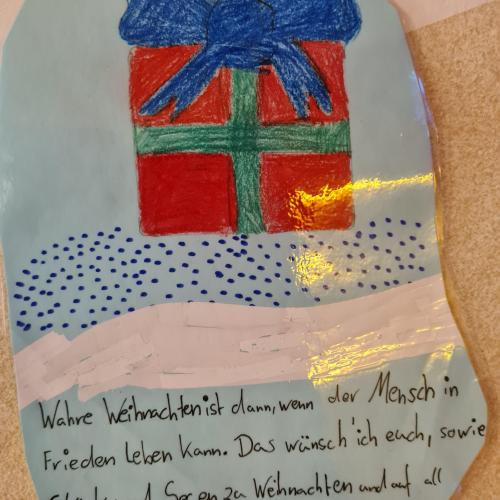 Wahre Weihnachten ist dann, wenn der Mensch in
Frieden leben kann. Das wünsch' ich euch, sowie
und Segen zu Weihnachten und auf all